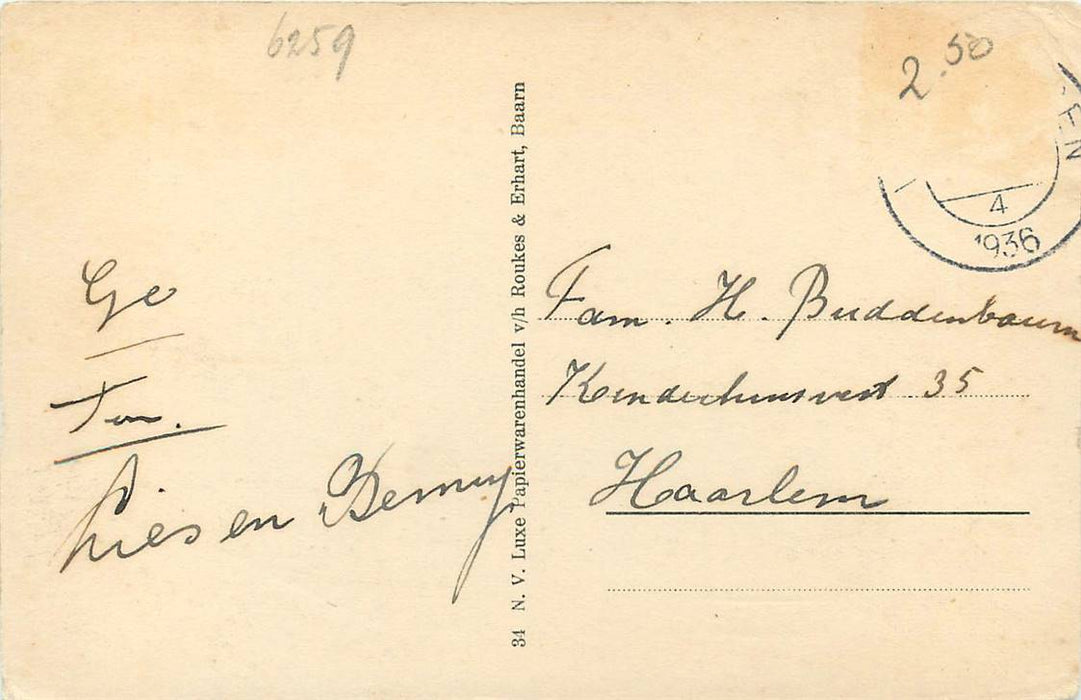 6259
2.50
EN
4
1936
Ge
Lies en Benny
34 N. V. Luxe Papierwarenhandel v/h Roukes & Erhart, Baarn
Fam. H. Buddenbaum
Kinderhuisvest 35
Haarlem